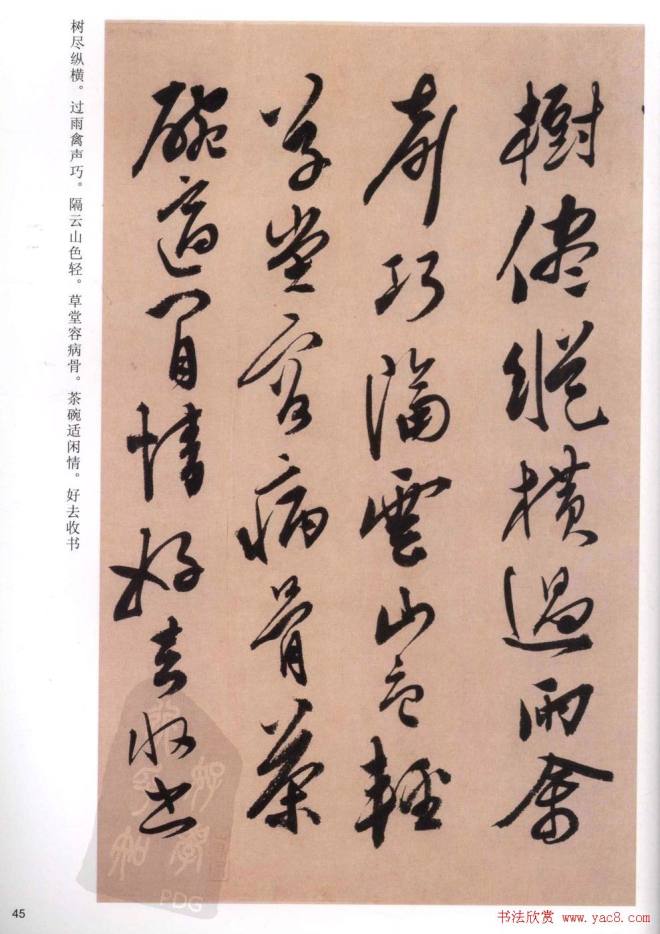 樹儘縱橫過雨禽
聲巧隔雲山色輕
草堂容病骨茶
碗適閒情好去收书
树尽纵横。过雨禽声巧。隔云山色轻。草堂容病骨。茶碗适闲情。好去收书
45
PDG
书法欣赏 www.yac8.com